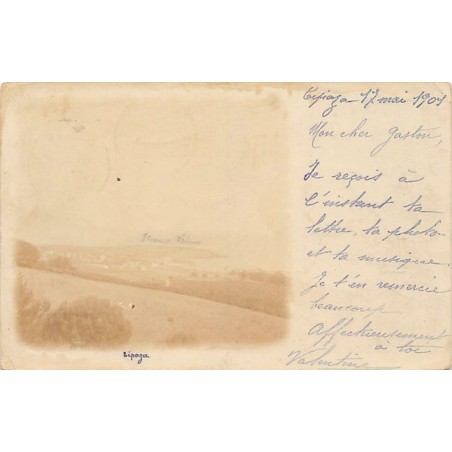 Tipaza 17 mai 1901
Mon cher Gaston,
Je reçois à
l'instant ta
lettre, ta photo
et ta musique.
Je t'en remercie
beaucoup
Affectueusement
à toi
Valentine
Tipaza